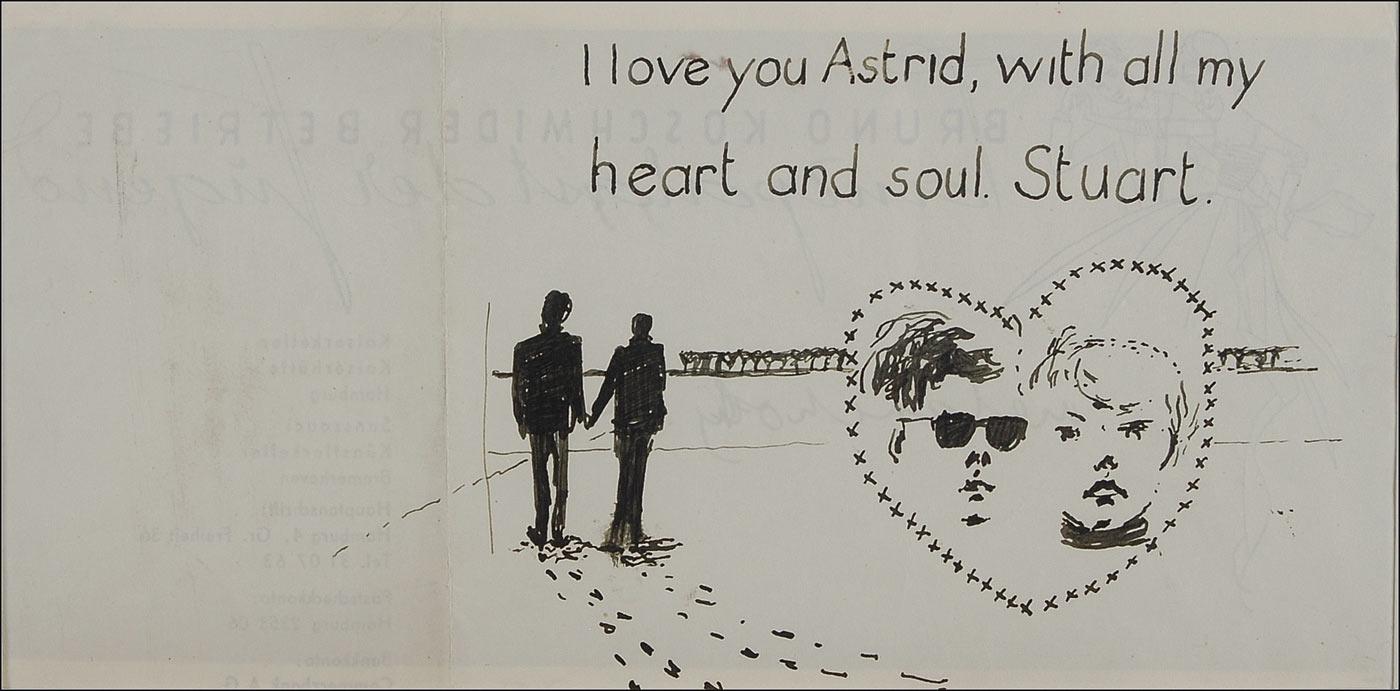 I love you Astrid, with all my
heart and soul. Stuart.
BRUNO KOSCHMIDER BETRIEBE
Kaiserkeller
Hamburg
Künstlerkeller
Bremerhaven
Hauptanschrift:
Hamburg 4, Gr. Freiheit 36
Tel. 31 07 63
Postscheckkonto:
Bankkonto:
Commerzbank A.G.